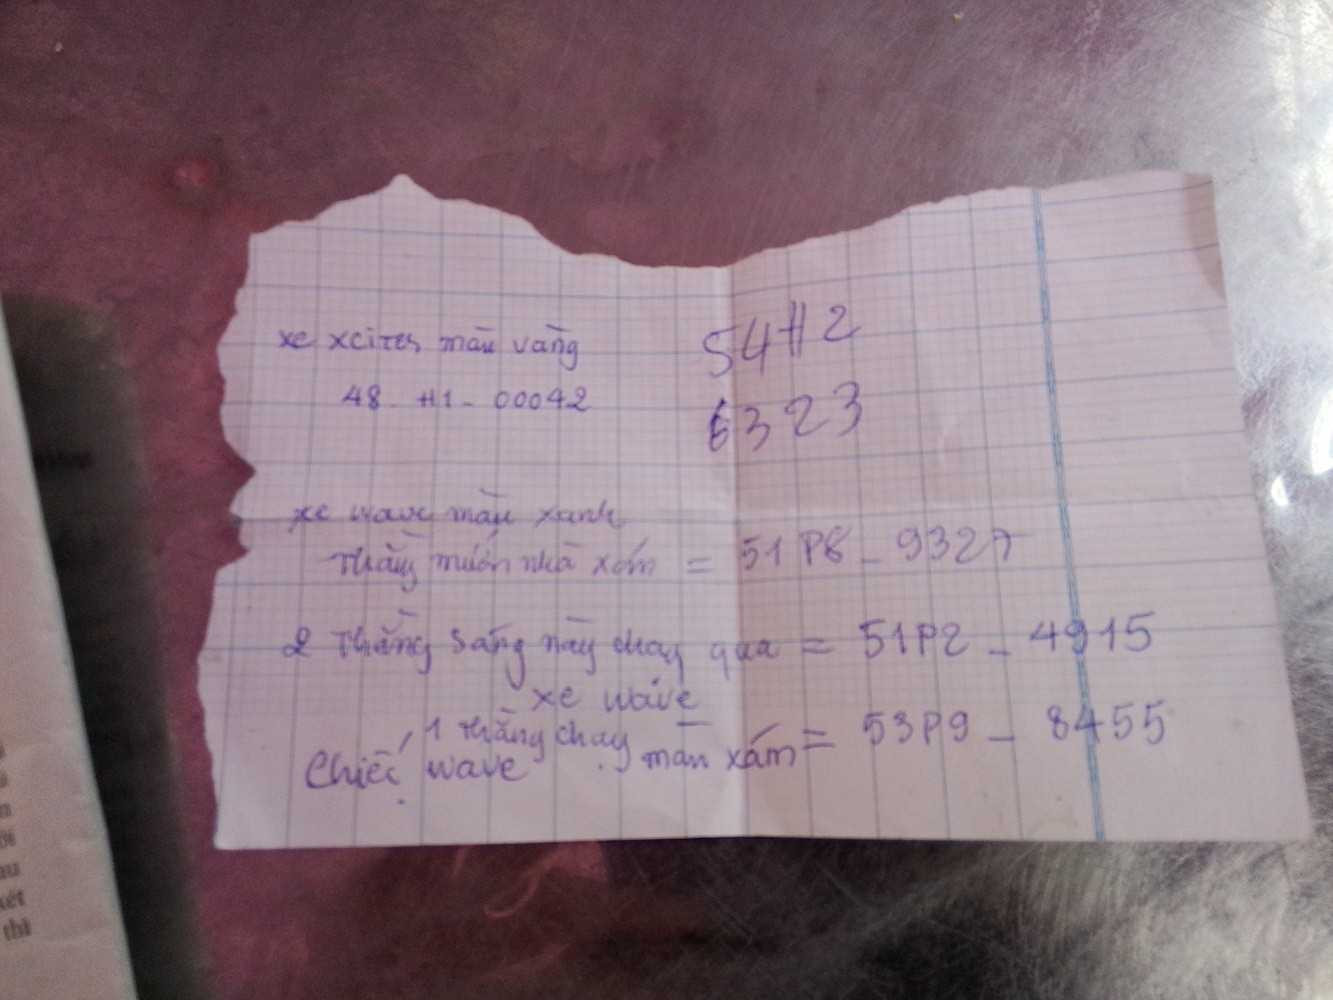 xe xcites màu vàng
48 - H1 - 00042
54H2
6323
xe wave màu xanh
Thằng mướn nhà xóm = 51P8 - 9327
2 Thằng sáng nãy chạy qua = 51P2 - 4915
xe wave
1 thằng chạy
Chiếc wave màu xám = 53P9 - 8455
ét
thì